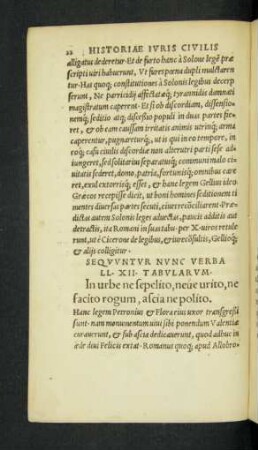 22 HISTORIAE IVRIS CIVILIS
alligatus dederetur. Et de furto hanc à Solone legẽ præ
scripti uiri habuerunt, Vt fures pœna dupli mulctaren
tur. Has quoq; constitutiones à Solonis legibus decerp
serunt, Ne parricidij affectatæq́; tyrannidis damnati
magistratum caperent. Et si ob discordiam, dissensio
nemq́; seditio atq; discessio populi in duas partes fie
ret, & ob eam caussam irritatis animis utrinq; arma
caperentur, pugnareturq́;, ut is qui in eo tempore, in
eoq; casu ciuilis discordiæ non alterutri parti sese ad-
iungeret, sed solitarius separatusq́; communi malo ci-
uitatis secederet, domo, patria, fortunisq́; omnibus car
eret, exul extorrisq́; esset, & hanc legem Gellius ideo
Græcos recepisse dicit, ut boni homines seditionem ti
mentes diuersas partes secuti, ciues recõciliarent. Præ
dictas autem Solonis leges aduectas, paucis additis aut
detractis, ita Romani in suas tabu. per X. uiros retule
runt, ut è Cicerone de legibus, & iureconsultis, Gellioq́;
& alijs colligitur.
SEQVVNTVR NVNC VERBA
LL. XII. TABVLARVM.
In urbe ne sepelito, neue urito, ne
facito rogum, ascia ne polito.
Hanc legem Petronius & Flora eius uxor transgressi
sunt. nam monumentum uiui sibi ponendum Valentiæ
curauerunt, & sub ascia dedicauerunt, quod adhuc in
æde diui Felicis extat. Romanus quoq; apud Allobro-